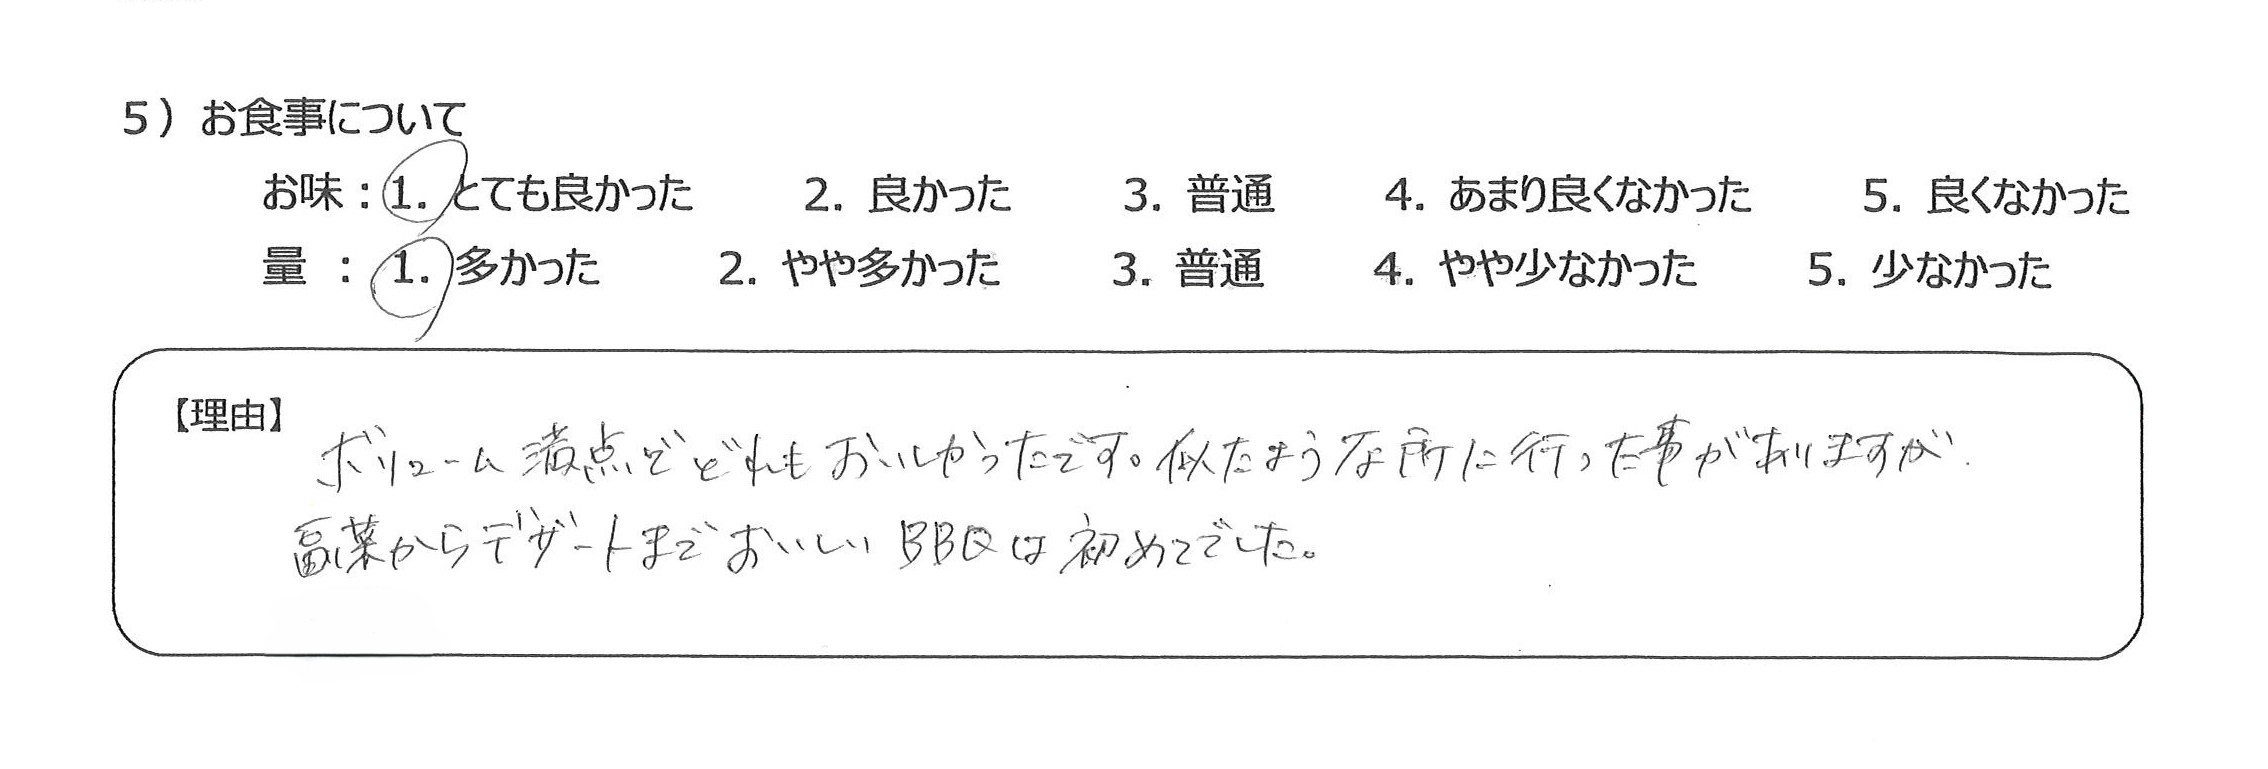 5）お食事について
お味：1. とても良かった 2. 良かった 3. 普通 4. あまり良くなかった 5. 良くなかった
量 ： 1. 多かった 2. やや多かった 3. 普通 4. やや少なかった 5. 少なかった
【理由】
ボリューム満点でどれもおいしかったです。似たような所に行った事がありますが、
副菜からデザートまでおいしいBBQは初めてでした。